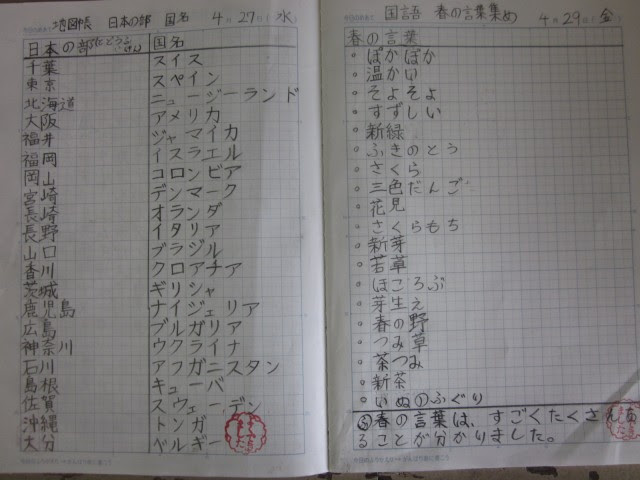 地図帳 日本の部 国名 4月27日(水)
日本の部 国名
千葉 スイス
東京 スペイン
北海道 ニュージーランド
大阪 アメリカ
福井 ジャマイカ
福岡 イスラエル
岡山 コロンビア
宮崎 デンマーク
長崎 オランダ
長野 イタリア
山口 ブラジル
香川 クロアチア
茨城 ギリシャ
鹿児島 ナイジェリア
広島 ブルガリア
神奈川 ウクライナ
石川 アフガニスタン
島根 キューバ
佐賀 スウェーデン
沖縄 トンガ
大分 ベルギー
国語 春の言葉集め 4月29日(金)
春の言葉
。ぽかぽか
。温かい
。そよそよ
。すずしい
。新緑
。ふきのとう
。さくら
。三色だんご
。花見
。さくらもち
。新芽
。若草
。ほころぶ
。芽生え
。春の野
。つみ草
。茶つみ
。新茶
。いぬのふぐり
春の言葉は、すごくたくさんあ
ることが分かりました。